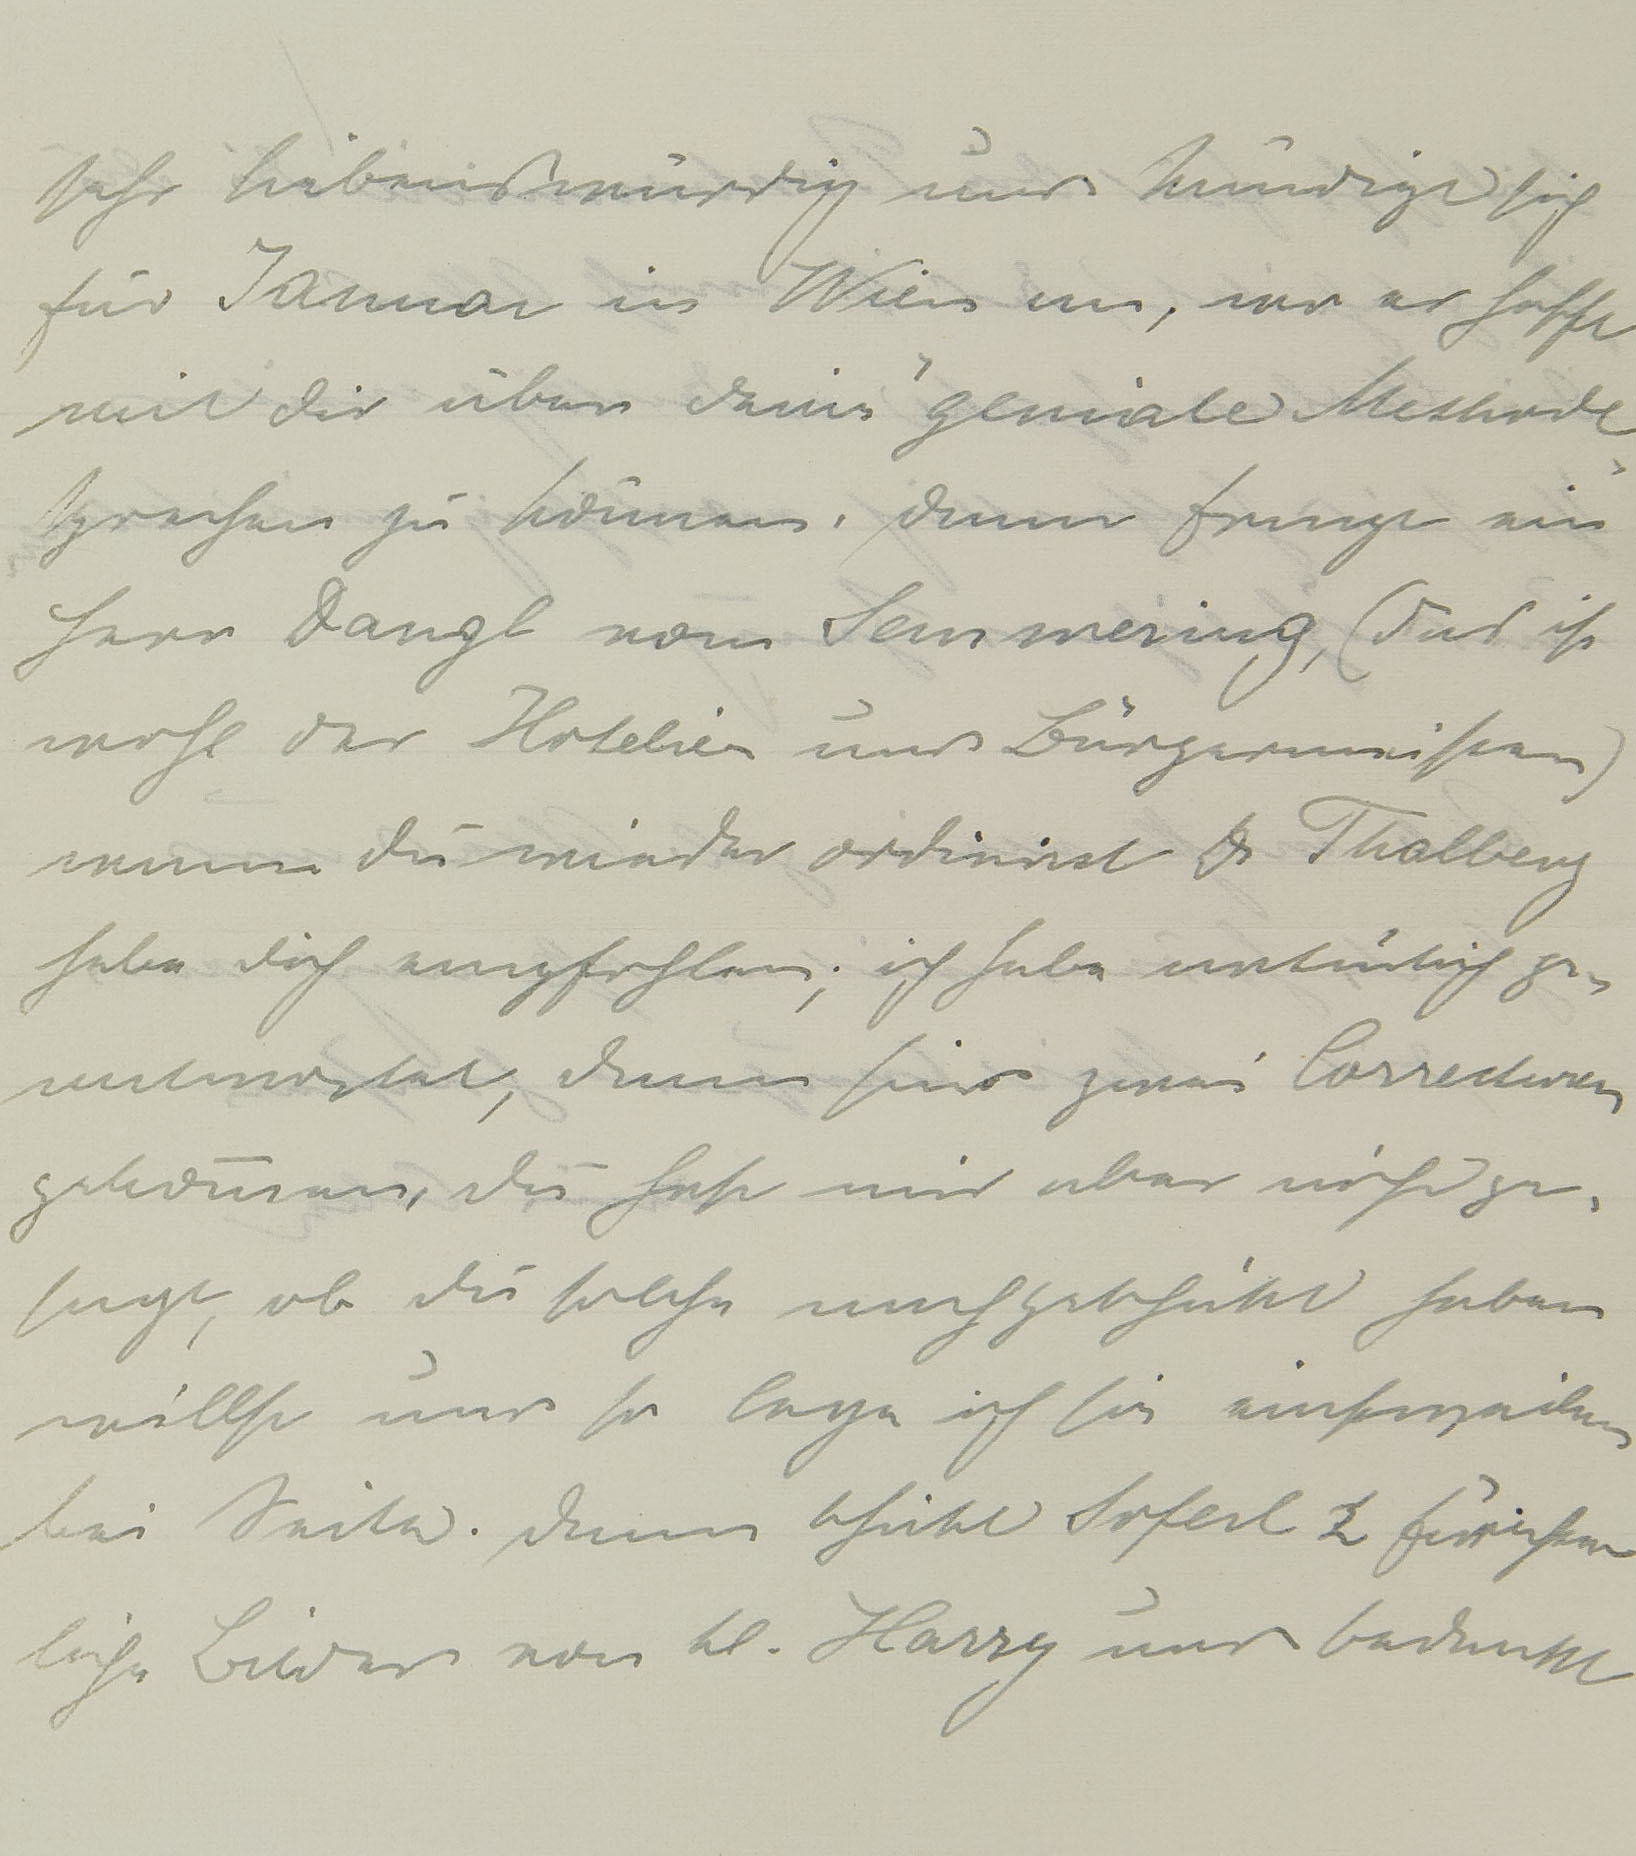 sehr liebenswürdig und kündigt sich
für Januar in Wien an, wo er hofft
mit dir über deine "geniale Methode"
sprechen zu können. dann fragt ein
Herr Dangl vom Semmering, (das ist
wohl der Hotelier und Bürgermeister)
wann du wieder ordinirst Dr Thalberg
habe dich empfohlen; ich habe natürlich ge-
antwortet, dann sind zwei Correcturen
gekom̅en, du hast mir aber nicht ge-
sagt, ob du solche nachgeschickt haben
willst und so lege ich sie einstweilen
bei Seite. dann schickt Soferl 2 fürchter
liche Bilder von kl. Harry und bedankt